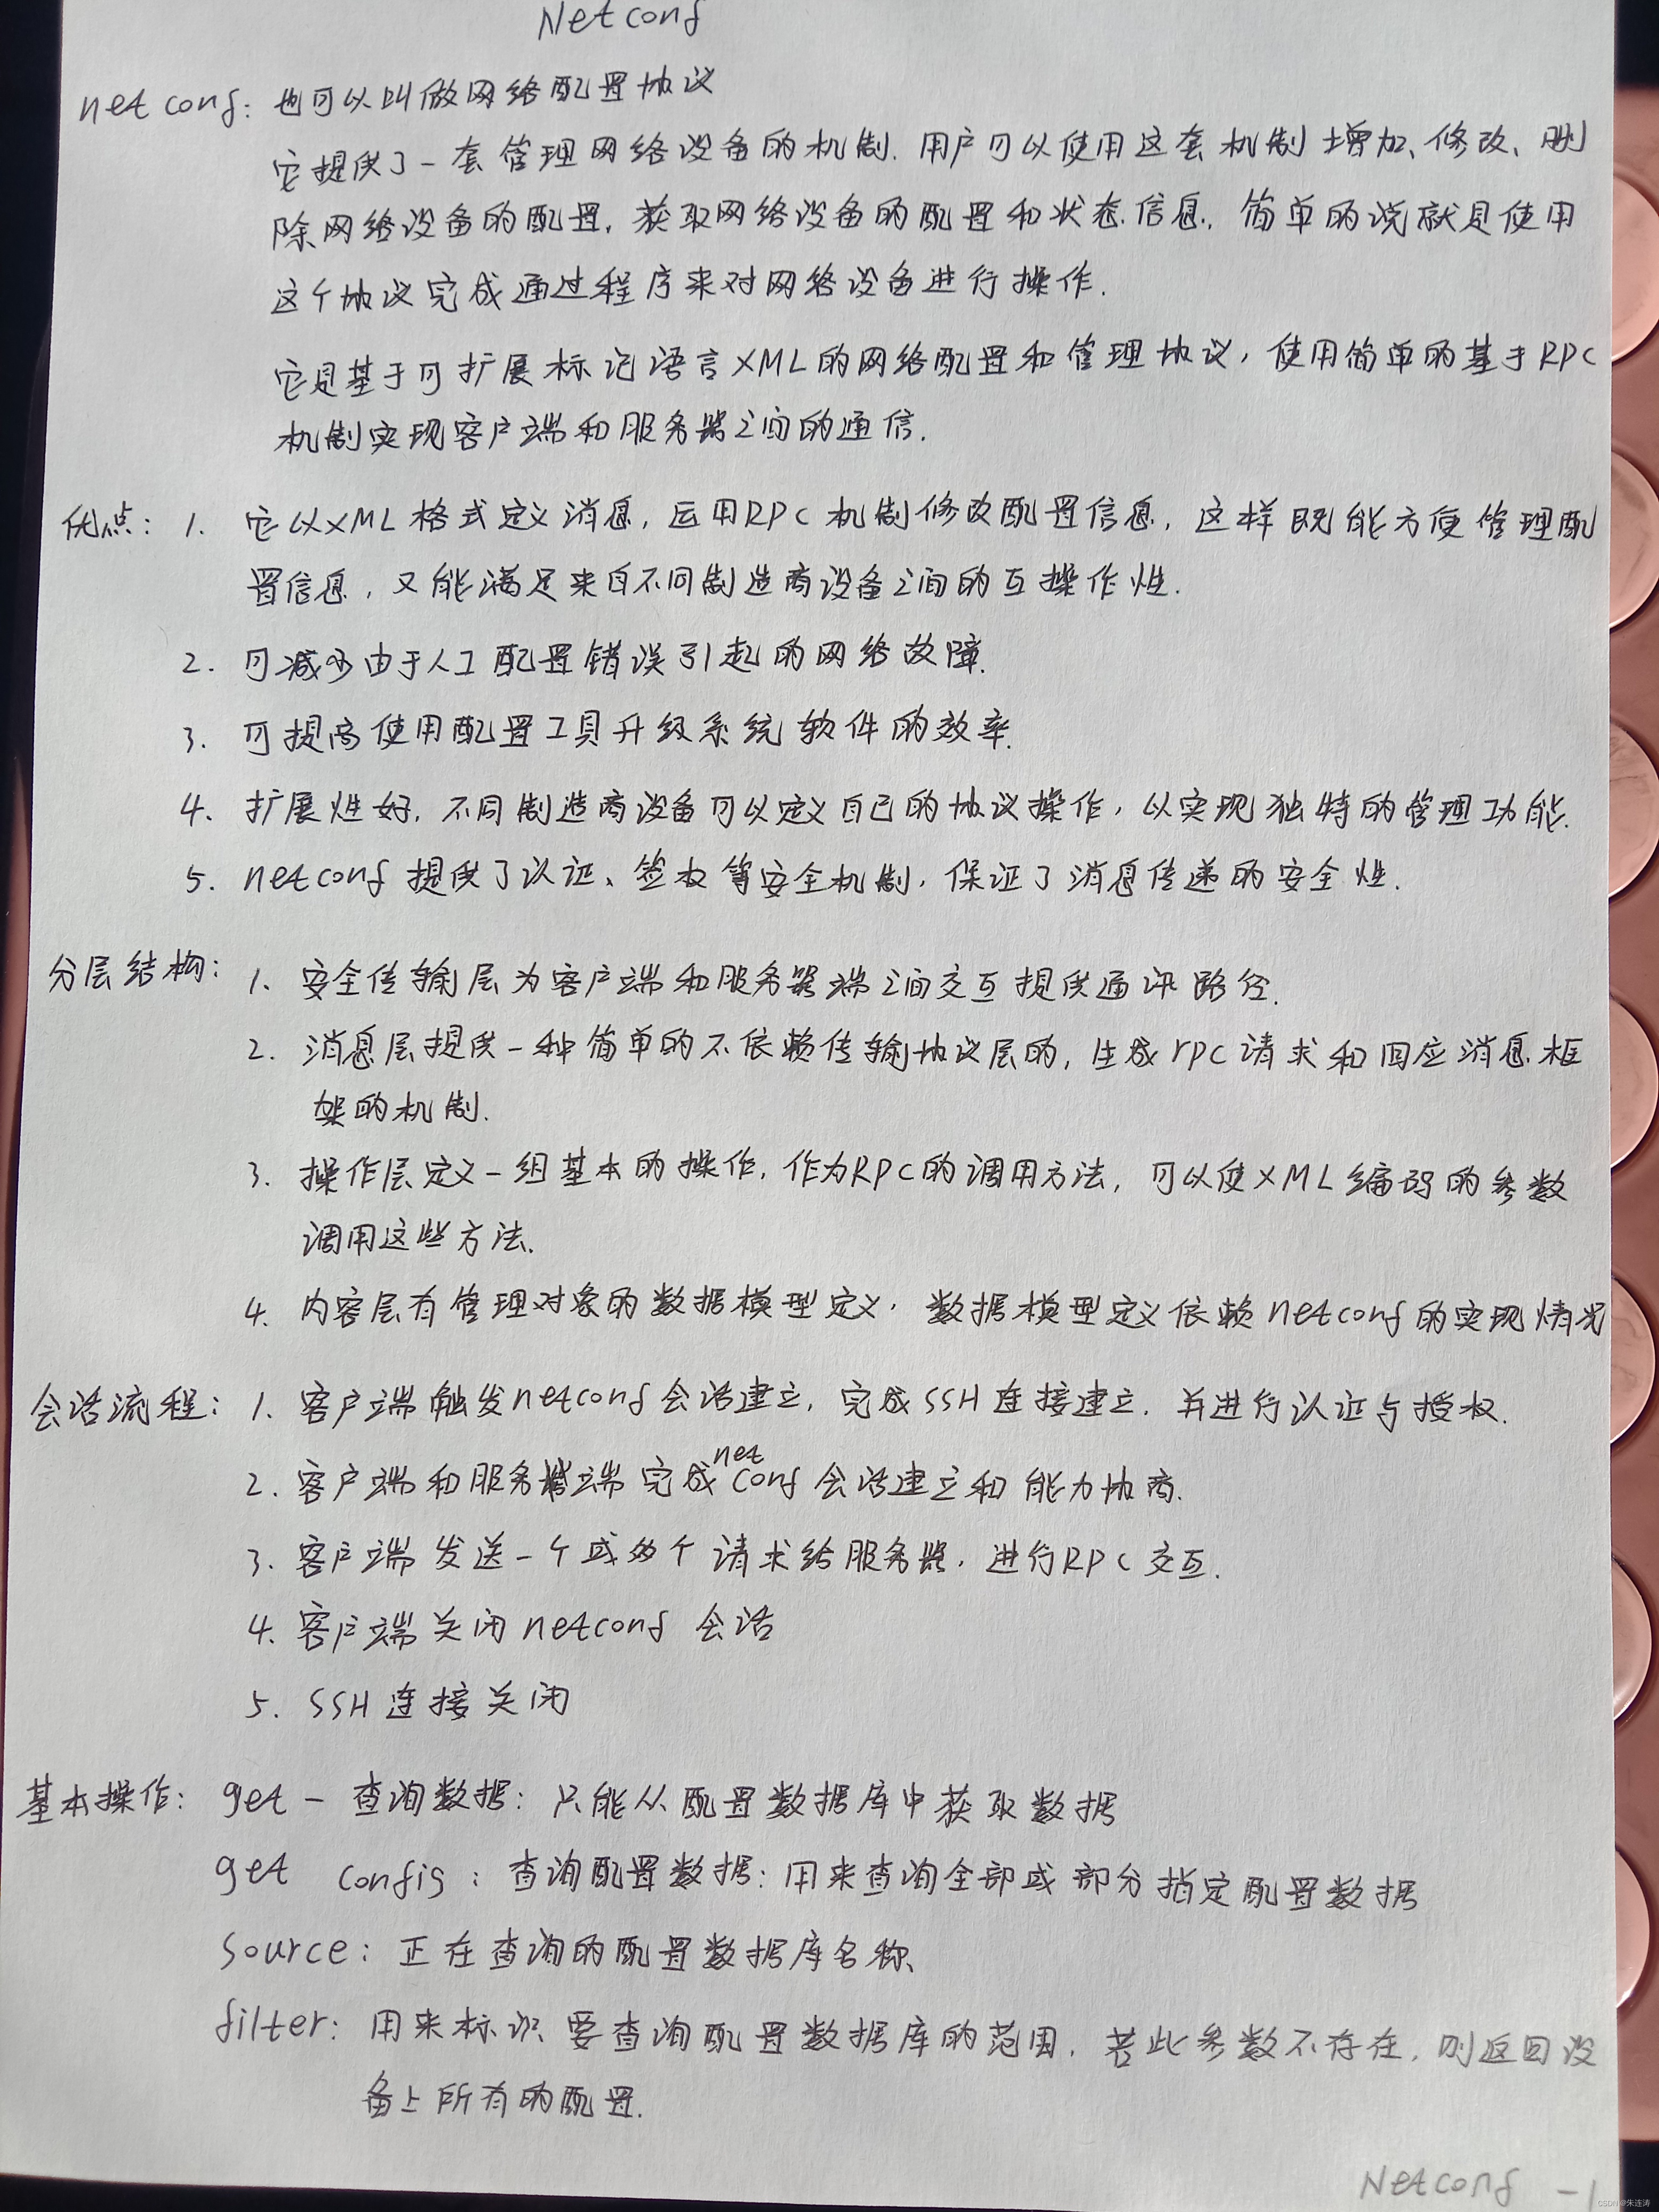 Netconf
netconf: 也可以叫做网络配置协议
它提供了一套管理网络设备的机制. 用户可以使用这套机制增加、修改、删
除网络设备的配置, 获取网络设备的配置和状态信息. 简单的说就是使用
这个协议完成通过程序来对网络设备进行操作.
它是基于可扩展标记语言XML的网络配置和管理协议, 使用简单的基于RPC
机制实现客户端和服务器之间的通信.
优点: 1. 它以XML格式定义消息, 运用RPC机制修改配置信息, 这样既能方便管理配
置信息, 又能满足来自不同制造商设备之间的互操作性.
2. 可减少由于人工配置错误引起的网络故障.
3. 可提高使用配置工具升级系统软件的效率.
4. 扩展性好, 不同制造商设备可以定义自己的协议操作, 以实现独特的管理功能.
5. netconf提供了认证、签权等安全机制, 保证了消息传递的安全性.
分层结构: 1. 安全传输层为客户端和服务器端之间交互提供通讯路径.
2. 消息层提供一种简单的不依赖传输协议层的, 生成rpc请求和回应消息框
架的机制.
3. 操作层定义一组基本的操作, 作为RPC的调用方法, 可以使XML编码的参数
调用这些方法.
4. 内容层有管理对象的数据模型定义, 数据模型定义依赖netconf的实现情况
会话流程: 1. 客户端触发netconf会话建立, 完成SSH连接建立. 并进行认证与授权.
2. 客户端和服务器端完成netconf会话建立和能力协商.
3. 客户端发送一个或多个请求给服务器, 进行RPC交互.
4. 客户端关闭netconf会话
5. SSH连接关闭
基本操作: get - 查询数据: 只能从配置数据库中获取数据
get config: 查询配置数据: 用来查询全部或部分指定配置数据
source: 正在查询的配置数据库名称、
filter: 用来标识要查询配置数据库的范围, 若此参数不存在, 则返回设
备上所有的配置.
Netconf -1
CSDN @朱连涛